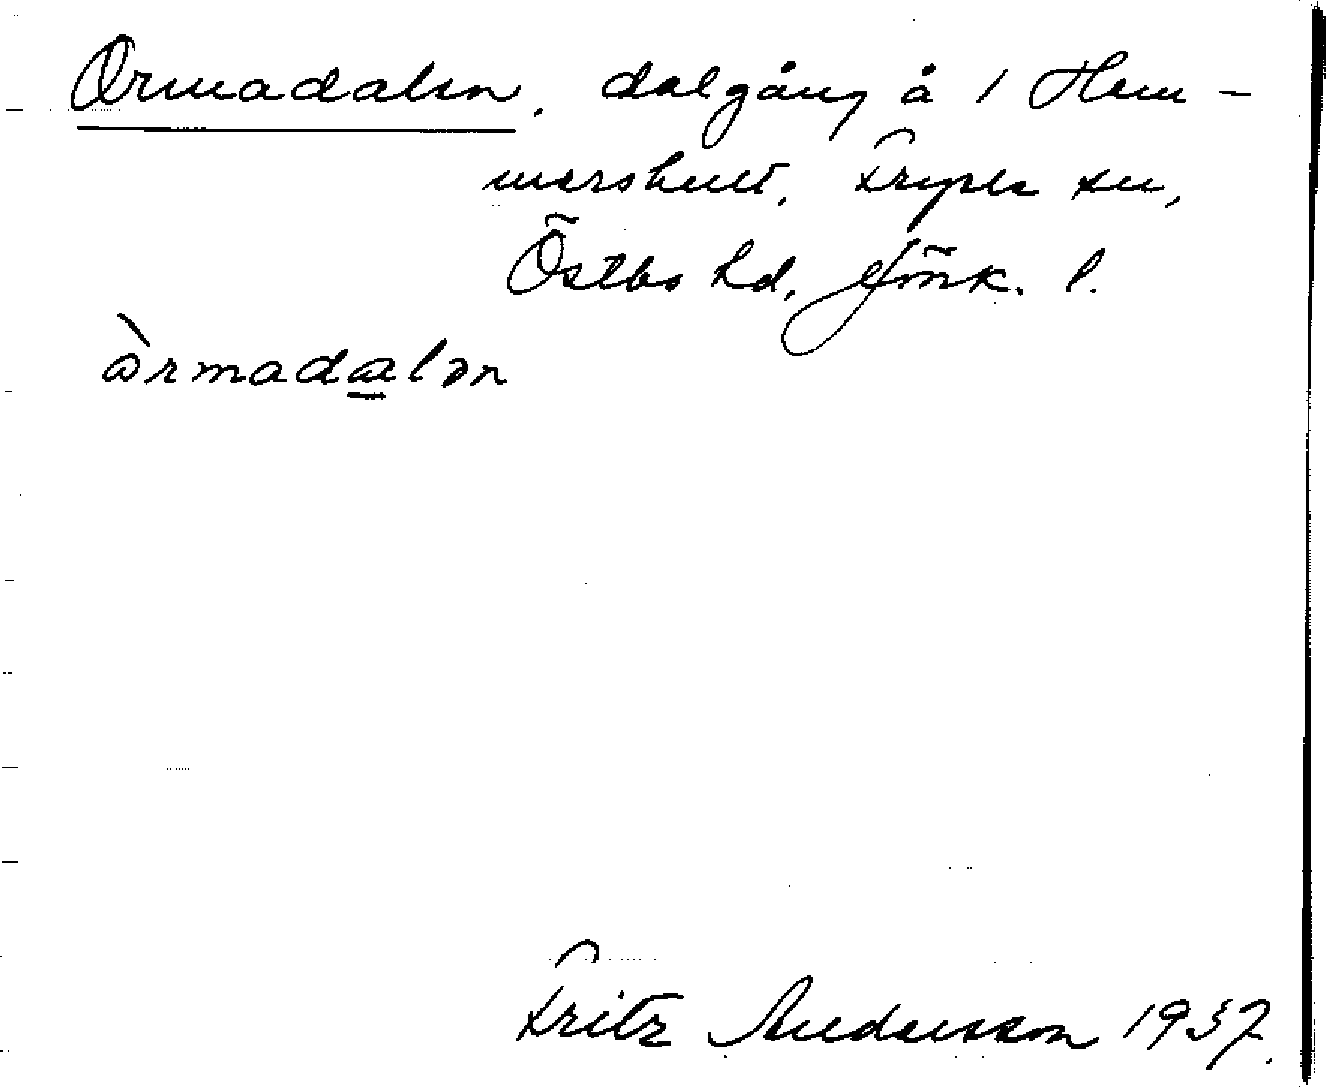 Ormadalen, dalgång å 1 Hem-
mershult, Fryele sn,
Östbo hd, Jönk. l.
òrmadalən
Fritz Andersson 1937.